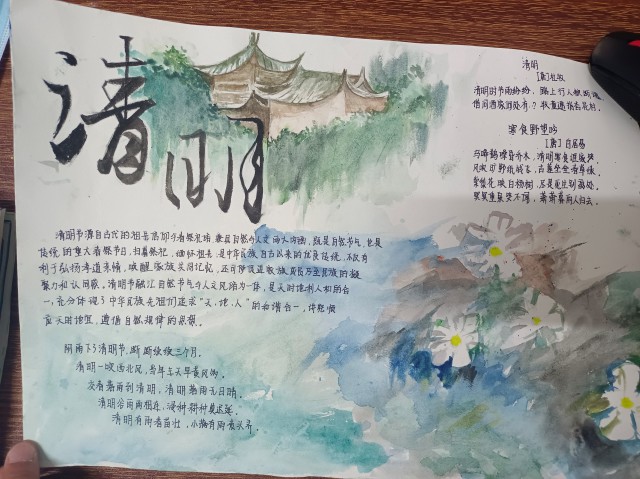 清明
清明
[唐]杜牧
清明时节雨纷纷，路上行人欲断魂。
借问酒家何处有？牧童遥指杏花村。
寒食野望吟
[唐] 白居易
乌啼鹊噪昏乔木，清明寒食谁家哭。
风吹旷野纸钱飞，古墓垒垒春草绿。
棠梨花映白杨树，尽是死生别离处。
冥冥重泉哭不闻，萧萧暮雨人归去。
清明节源自古代的祖先信仰与春祭礼俗，兼具自然与人文两大内涵，既是自然节气，也是
传统的重大春祭节日，扫墓祭祀、缅怀祖先，是中华民族自古以来的优良传统，不仅有
利于弘扬孝道亲情、唤醒家族共同记忆，还可促进家族成员乃至民族的凝
聚力和认同感。清明节融汇自然节气与人文风俗为一体，是天时地利人和的合
一，充分体现了中华民族先祖们追求“天、地、人”的和谐合一，讲究顺
应天时地宜、遵循自然规律的思想。
阴雨下了清明节，断断续续三个月。
清明一吹西北风，当年天旱黄风多。
麦怕清明，清明
清明谷雨两相连，浸种耕种莫迟延。
清明有雨麦苗壮，小满有雨麦头齐。